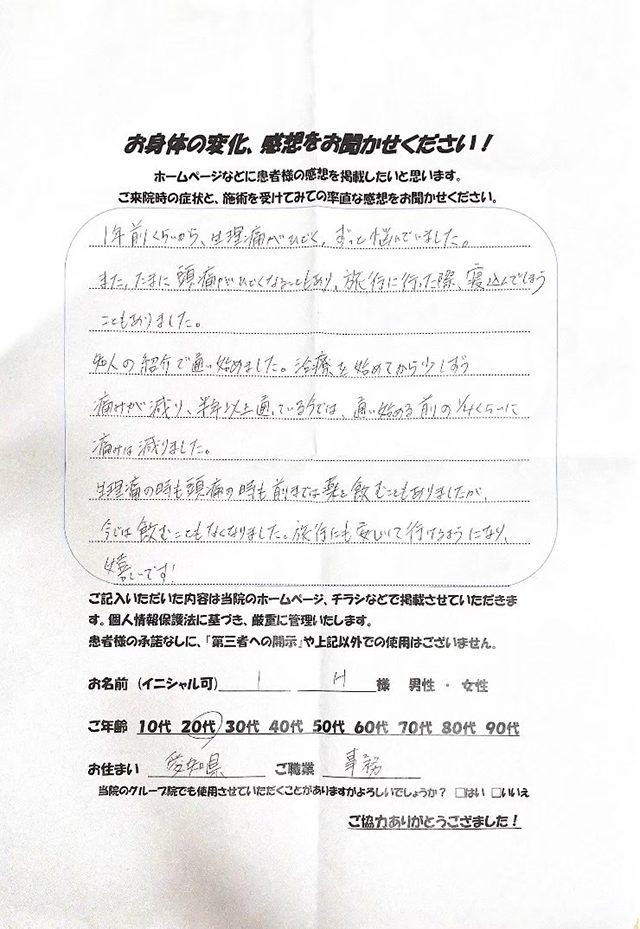 お身体の変化、感想をお聞かせください！
ホームページなどに患者様の感想を掲載したいと思います。
ご来院時の症状と、施術を受けてみての率直な感想をお聞かせください。
1年前くらいから、生理痛がひどく、ずっと悩んでいました。
また、たまに頭痛がひどくなることもあり、旅行に行った際、寝込んでしまう
こともありました。
知人の紹介で通い始めました。治療を始めてから少しずつ
痛みが減り、半年以上通っている今では、通い始める前の1/4くらいに
痛みは減りました。
生理痛の時も頭痛の時も前までは薬を飲むこともありましたが、
今では飲むこともなくなりました。旅行にも安心して行けるようになり、
嬉しいです!
ご記入いただいた内容は当院のホームページ、チラシなどで掲載させていただきま
す。個人情報保護法に基づき、厳重に管理いたします。
患者様の承諾なしに、「第三者への開示」や上記以外での使用はございません。
お名前（イニシャル可） I H 様 男性 ・ 女性
ご年齢 10代 20代 30代 40代 50代 60代 70代 80代 90代
お住まい 愛知県 ご職業 事務
当院のグループ院でも使用させていただくことがありますがよろしいでしょうか？ □はい □いいえ
ご協力ありがとうござました！